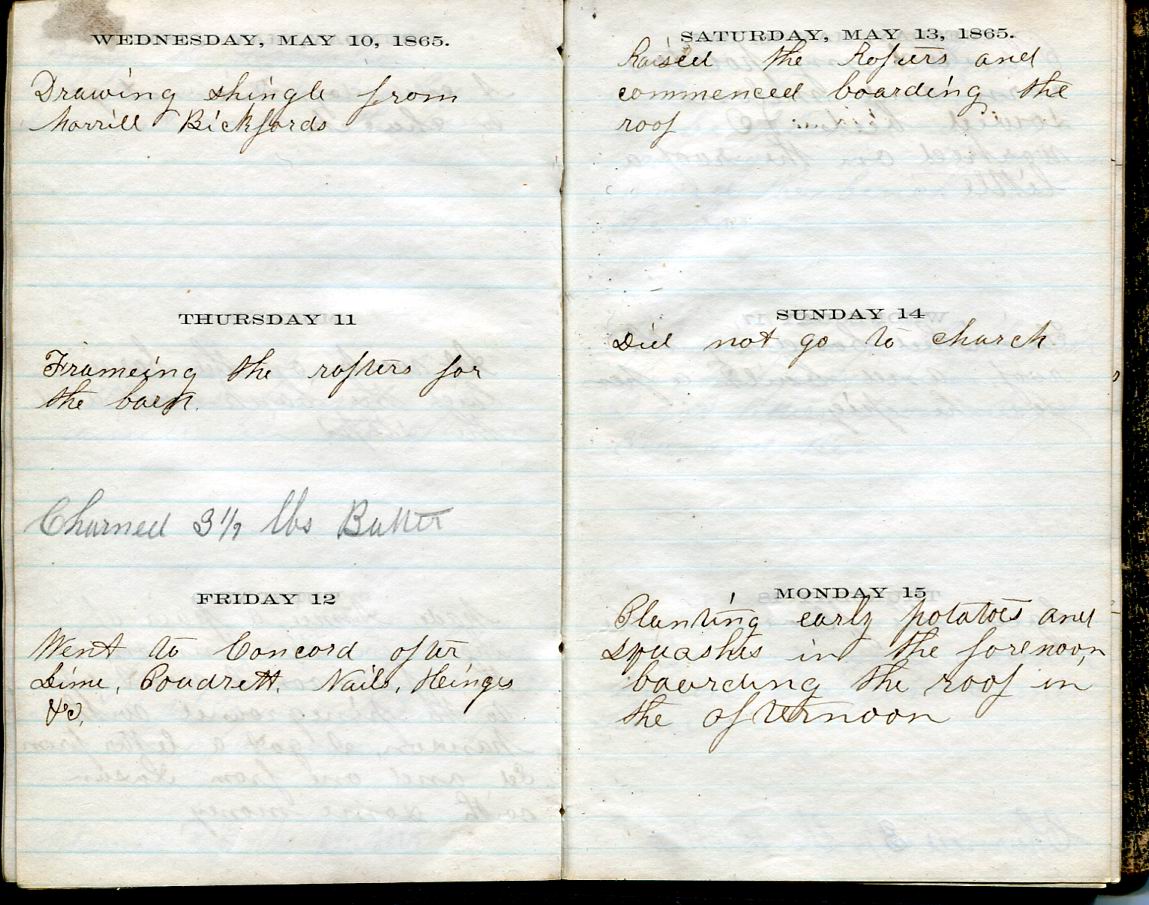 WEDNESDAY, MAY 10, 1865.
Drawing shingle from
Morrill Bickfords
THURSDAY 11
Frameing the rafters for
the barn.
Churned 3 1/2 lbs Butter
FRIDAY 12
Went to Concord after
Lime, Poudrett, Nails, Hinges
&c,
SATURDAY, MAY 13, 1865.
Raised the Rafters and
commenced boarding the
roof
SUNDAY 14
Did not go to church
MONDAY 15
Planting early potatoes and
squashes in the forenoon
boarding the roof in
the afternoon